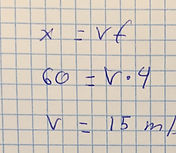 x = vt
60 = v·4
v = 15 m/